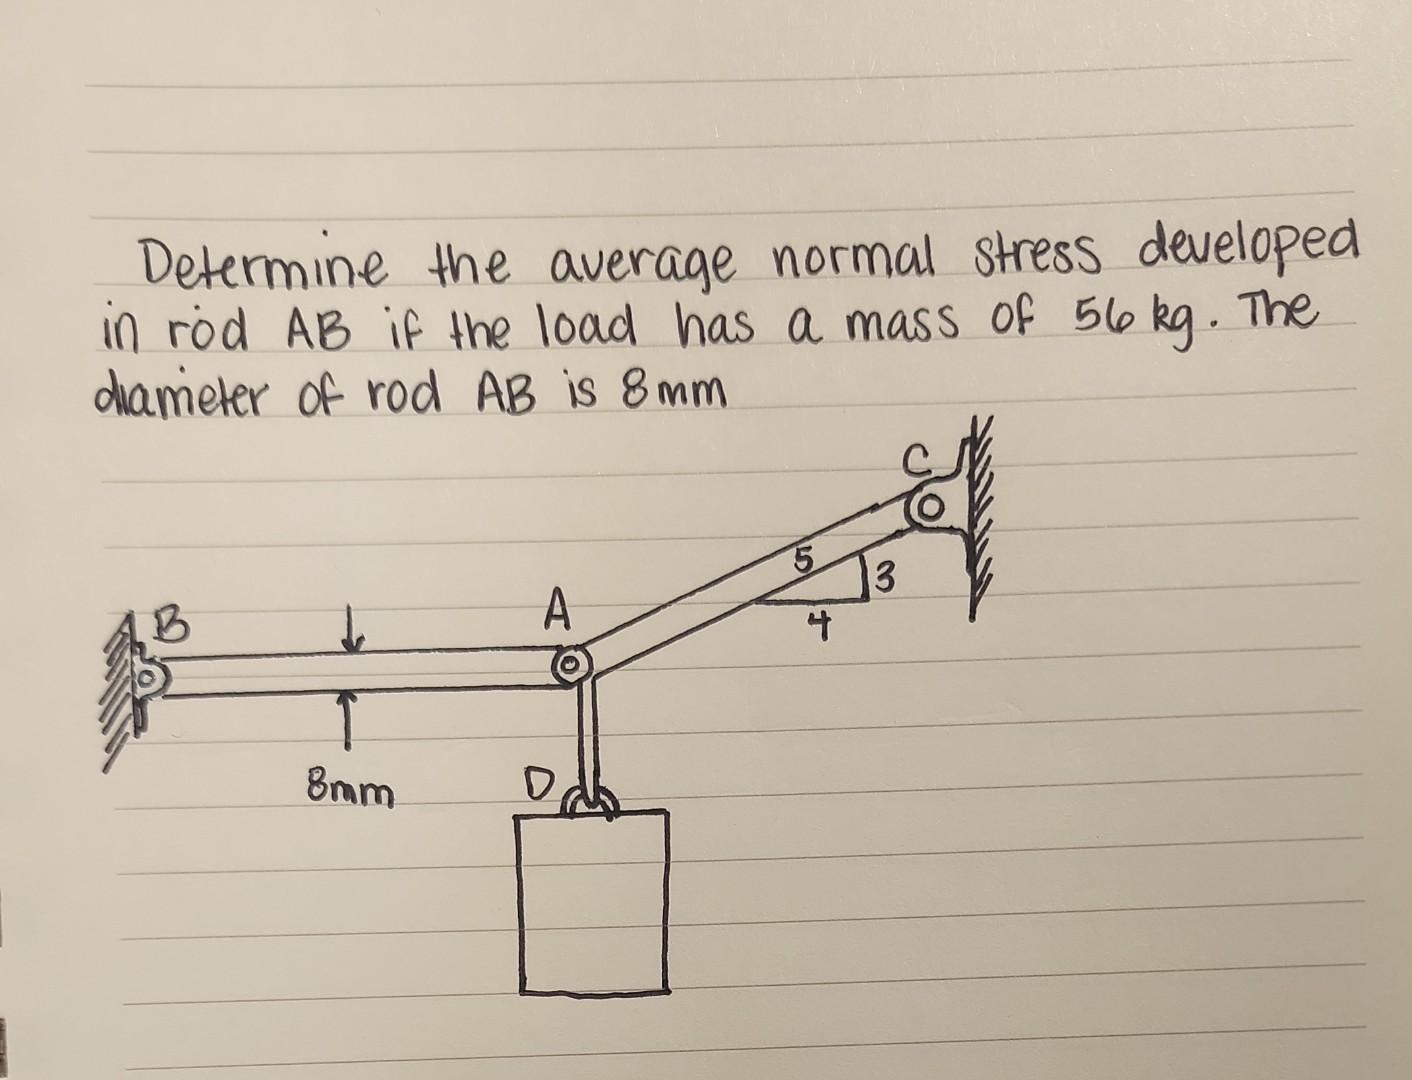 Determine the average normal stress developed
in rod AB if the load has a mass of 56 kg. The
diameter of rod AB is 8mm
C
5
3
4
A
B
8mm
D